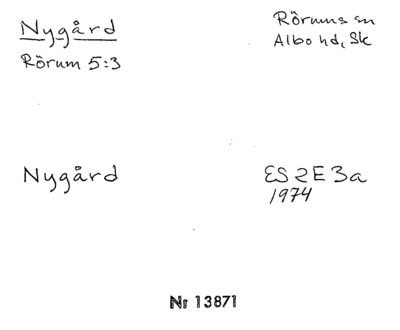 Nygård
Rörums sn
Rörum 5:3
Albo hd, Sk
Nygård
ES 2E 3a
1974
Nr 13871